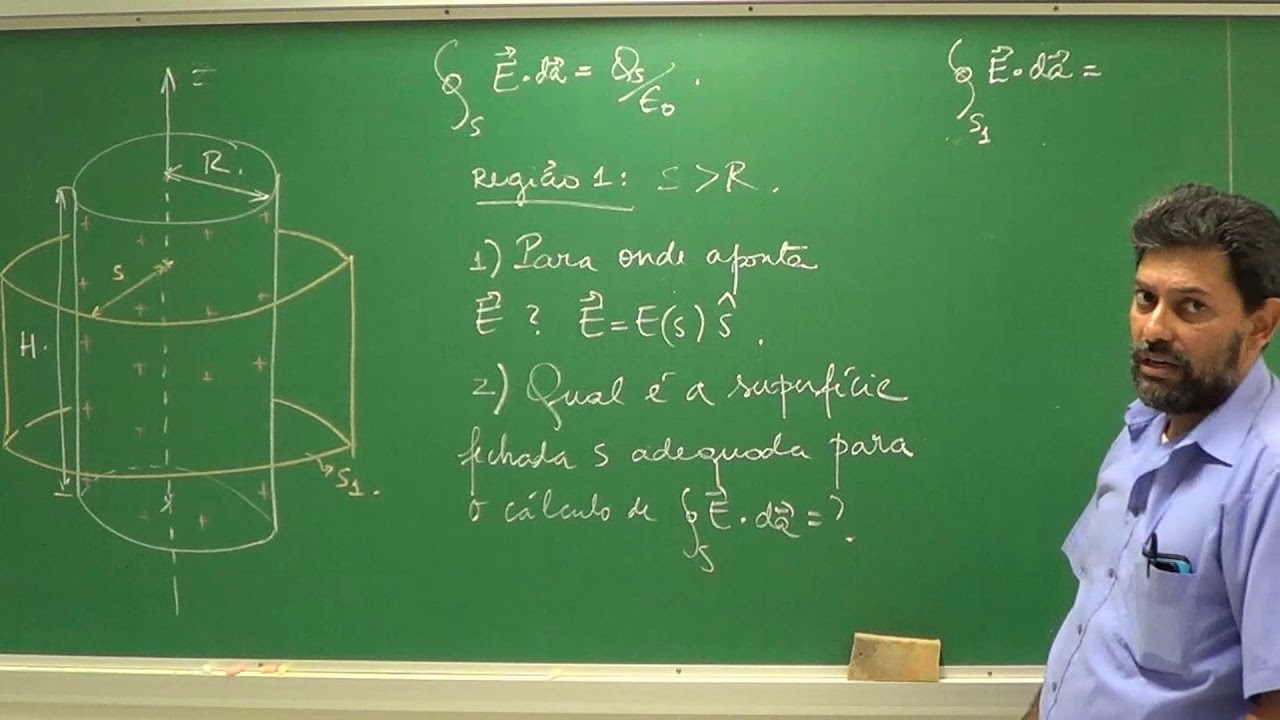 z
R.
s
H.
S₁.
∮_S E⃗ · da⃗ = Q_S/ε₀ .
Região 1: s > R .
1) Para onde aponta
E⃗ ? E⃗ = E(s) ŝ .
2) Qual é a superfície
fechada S adequada para
o cálculo de ∮_S E⃗ · da⃗ = ?
∮_S₁ E⃗ · da⃗ =